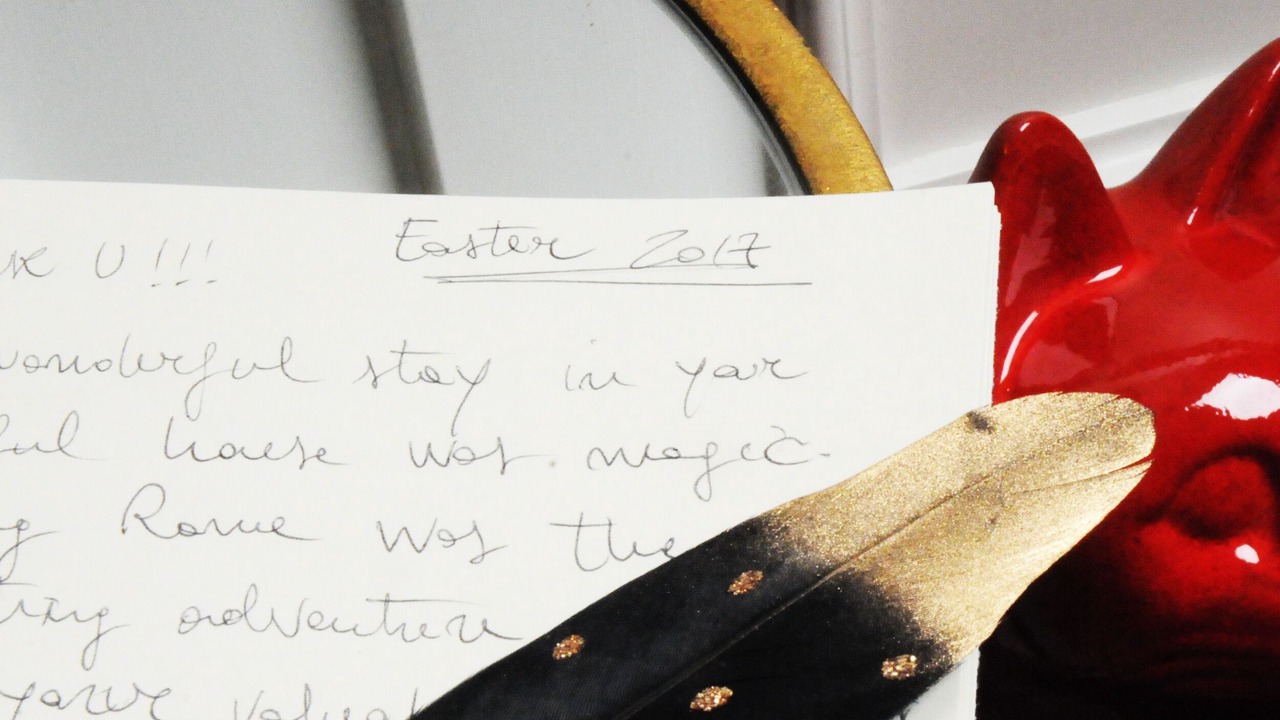 U!!! Easter 2017
wonderful stay in your
house was magic.
Rome was the
adventure
your